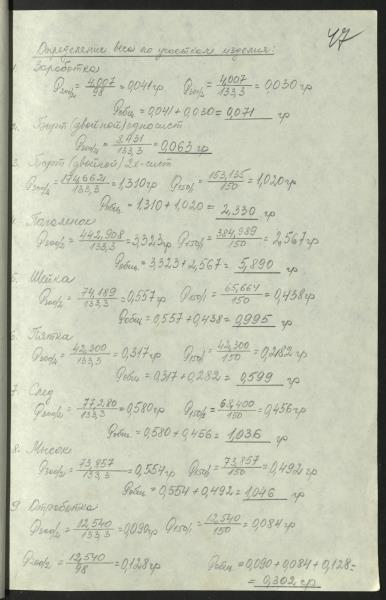 47
Определение веса по участкам изделия:
1. Заработка
Q200/2 = 4,007/98 = 0,041 гр Q200/2 = 4,007/133,3 = 0,030 гр
Qобщ = 0,041 + 0,030 = 0,071 гр
2. Борт (двойной) односист
= 8.431/133,3 = 0,063 гр
3. Борт (двойной) 2х-сист
= 174,6621/133,3 = 1,310 гр Q150/1 = 153,135/150 = 1,020 гр
Qобщ = 1,310 + 1,020 = 2,330 гр
4. Паголенок
= 442,908/133,3 = 3,323 гр Q150/1 = 384,989/150 = 2,567 гр
Qобщ = 3,323 + 2,567 = 5,890 гр
5. Шейка
= 74,189/133,3 = 0,557 гр Q150/1 = 65,664/150 = 0,438 гр
Qобщ = 0,557 + 0,438 = 0,995 гр
6. Пятка
= 42,300/133,3 = 0,317 гр Q150/1 = 42,300/150 = 0,2182 гр
Qобщ = 0,317 + 0,282 = 0,599 гр
7. След
= 77,280/133,3 = 0,580 гр Q150/1 = 68,400/150 = 0,456 гр
Qобщ = 0,580 + 0,456 = 1,036 гр
8. Мысок
= 73,857/133,3 = 0,554 гр Q150/1 = 73,857/150 = 0,492 гр
Qобщ = 0,554 + 0,492 = 1,046 гр
9. Отработка
= 12,540/133,3 = 0,090 гр Q150/1 = 12,540/150 = 0,084 гр
Q200/2 = 12,540/98 = 0,128 гр Qобщ = 0,090 + 0,084 + 0,128 =
= 0,302 гр